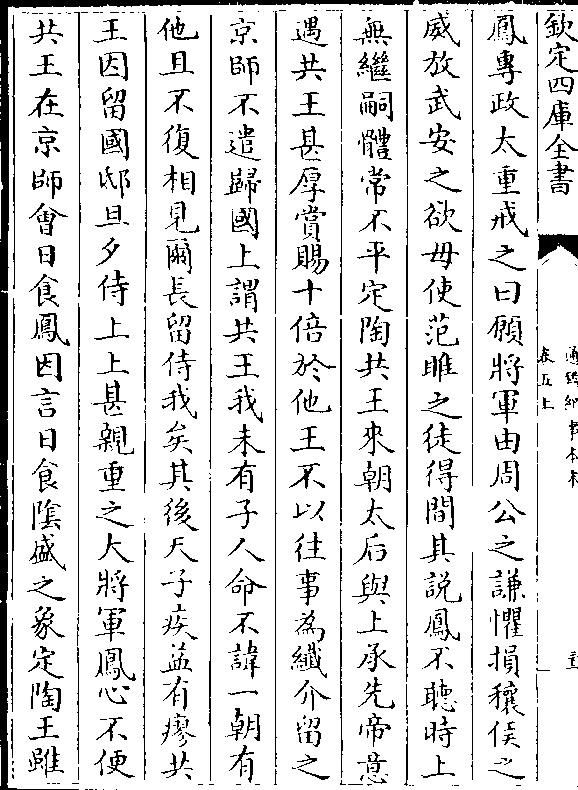 欽定四庫全書
通鑑紀事本末
卷五上
鳳專政太重戒之曰願將軍由周公之謙懼損穰侯之
威放武安之欲毋使范雎之徒得間其說鳳不聽時上
無繼嗣體常不平定陶共王來朝太后與上承先帝意
遇共王甚厚賞賜十倍於他王不以往事為纖介留之
京師不遣歸國上謂共王我未有子人命不諱一朝有
他且不復相見爾長留侍我矣其後天子疾益有瘳共
王因留國邸旦夕侍上上甚親重之大將軍鳳心不便
共王在京師會日食鳳因言日食陰盛之象定陶王雖